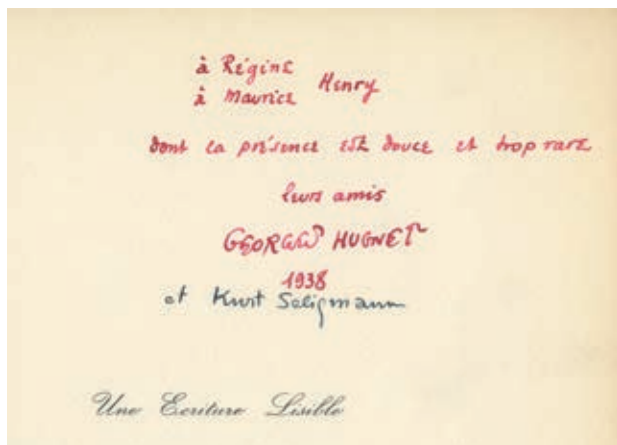 à Régine
à Maurice Henry
dont la présence est douce et trop rare
leurs amis
GEORGES HUGNET
1938
et Kurt Seligmann
Une Ecriture Lisible